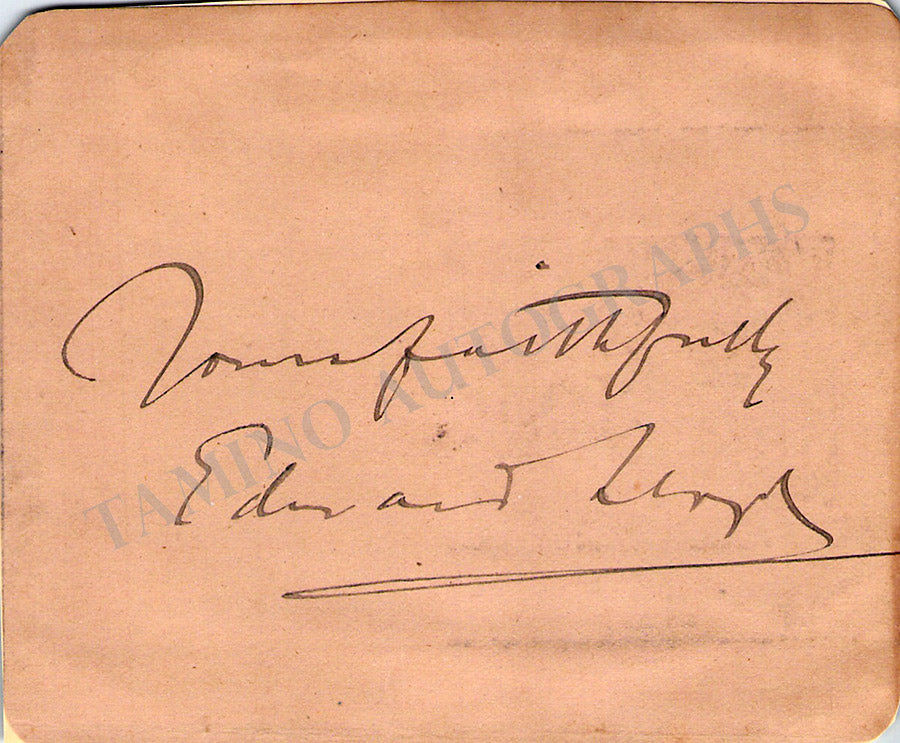 Yours faithfully
Edward Lloyd
TAMINO AUTOGRAPHS